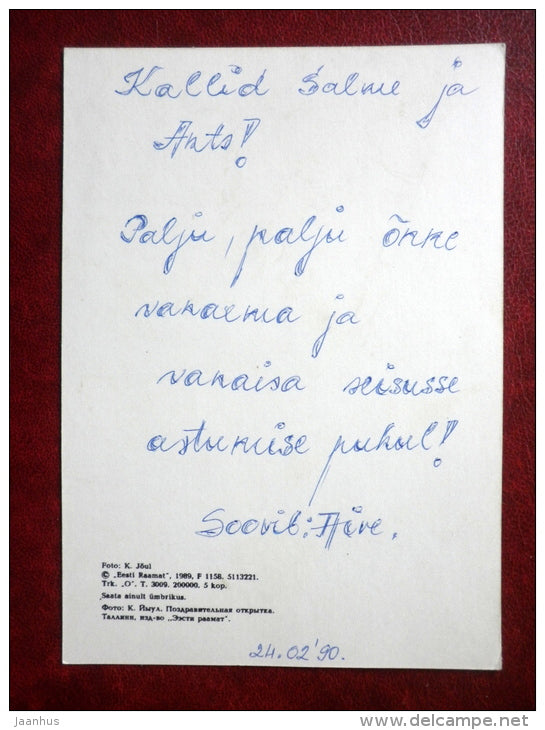 Kallid Salme ja
Ants!
Palju, palju õnne
vanaema ja
vanaisa seisusse
astumise puhul!
Soovib: Aire.
Foto: K. Jõul
© „Eesti Raamat", 1989, F 1158. 5113221.
Trk. „O". T. 3009. 200000. 5 kop.
Saata ainult ümbrikus.
Фото: К. Йыул. Поздравительная открытка.
Таллинн, изд-во „Ээсти раамат".
24.02'90.
jaanhus
www.delcampe.net